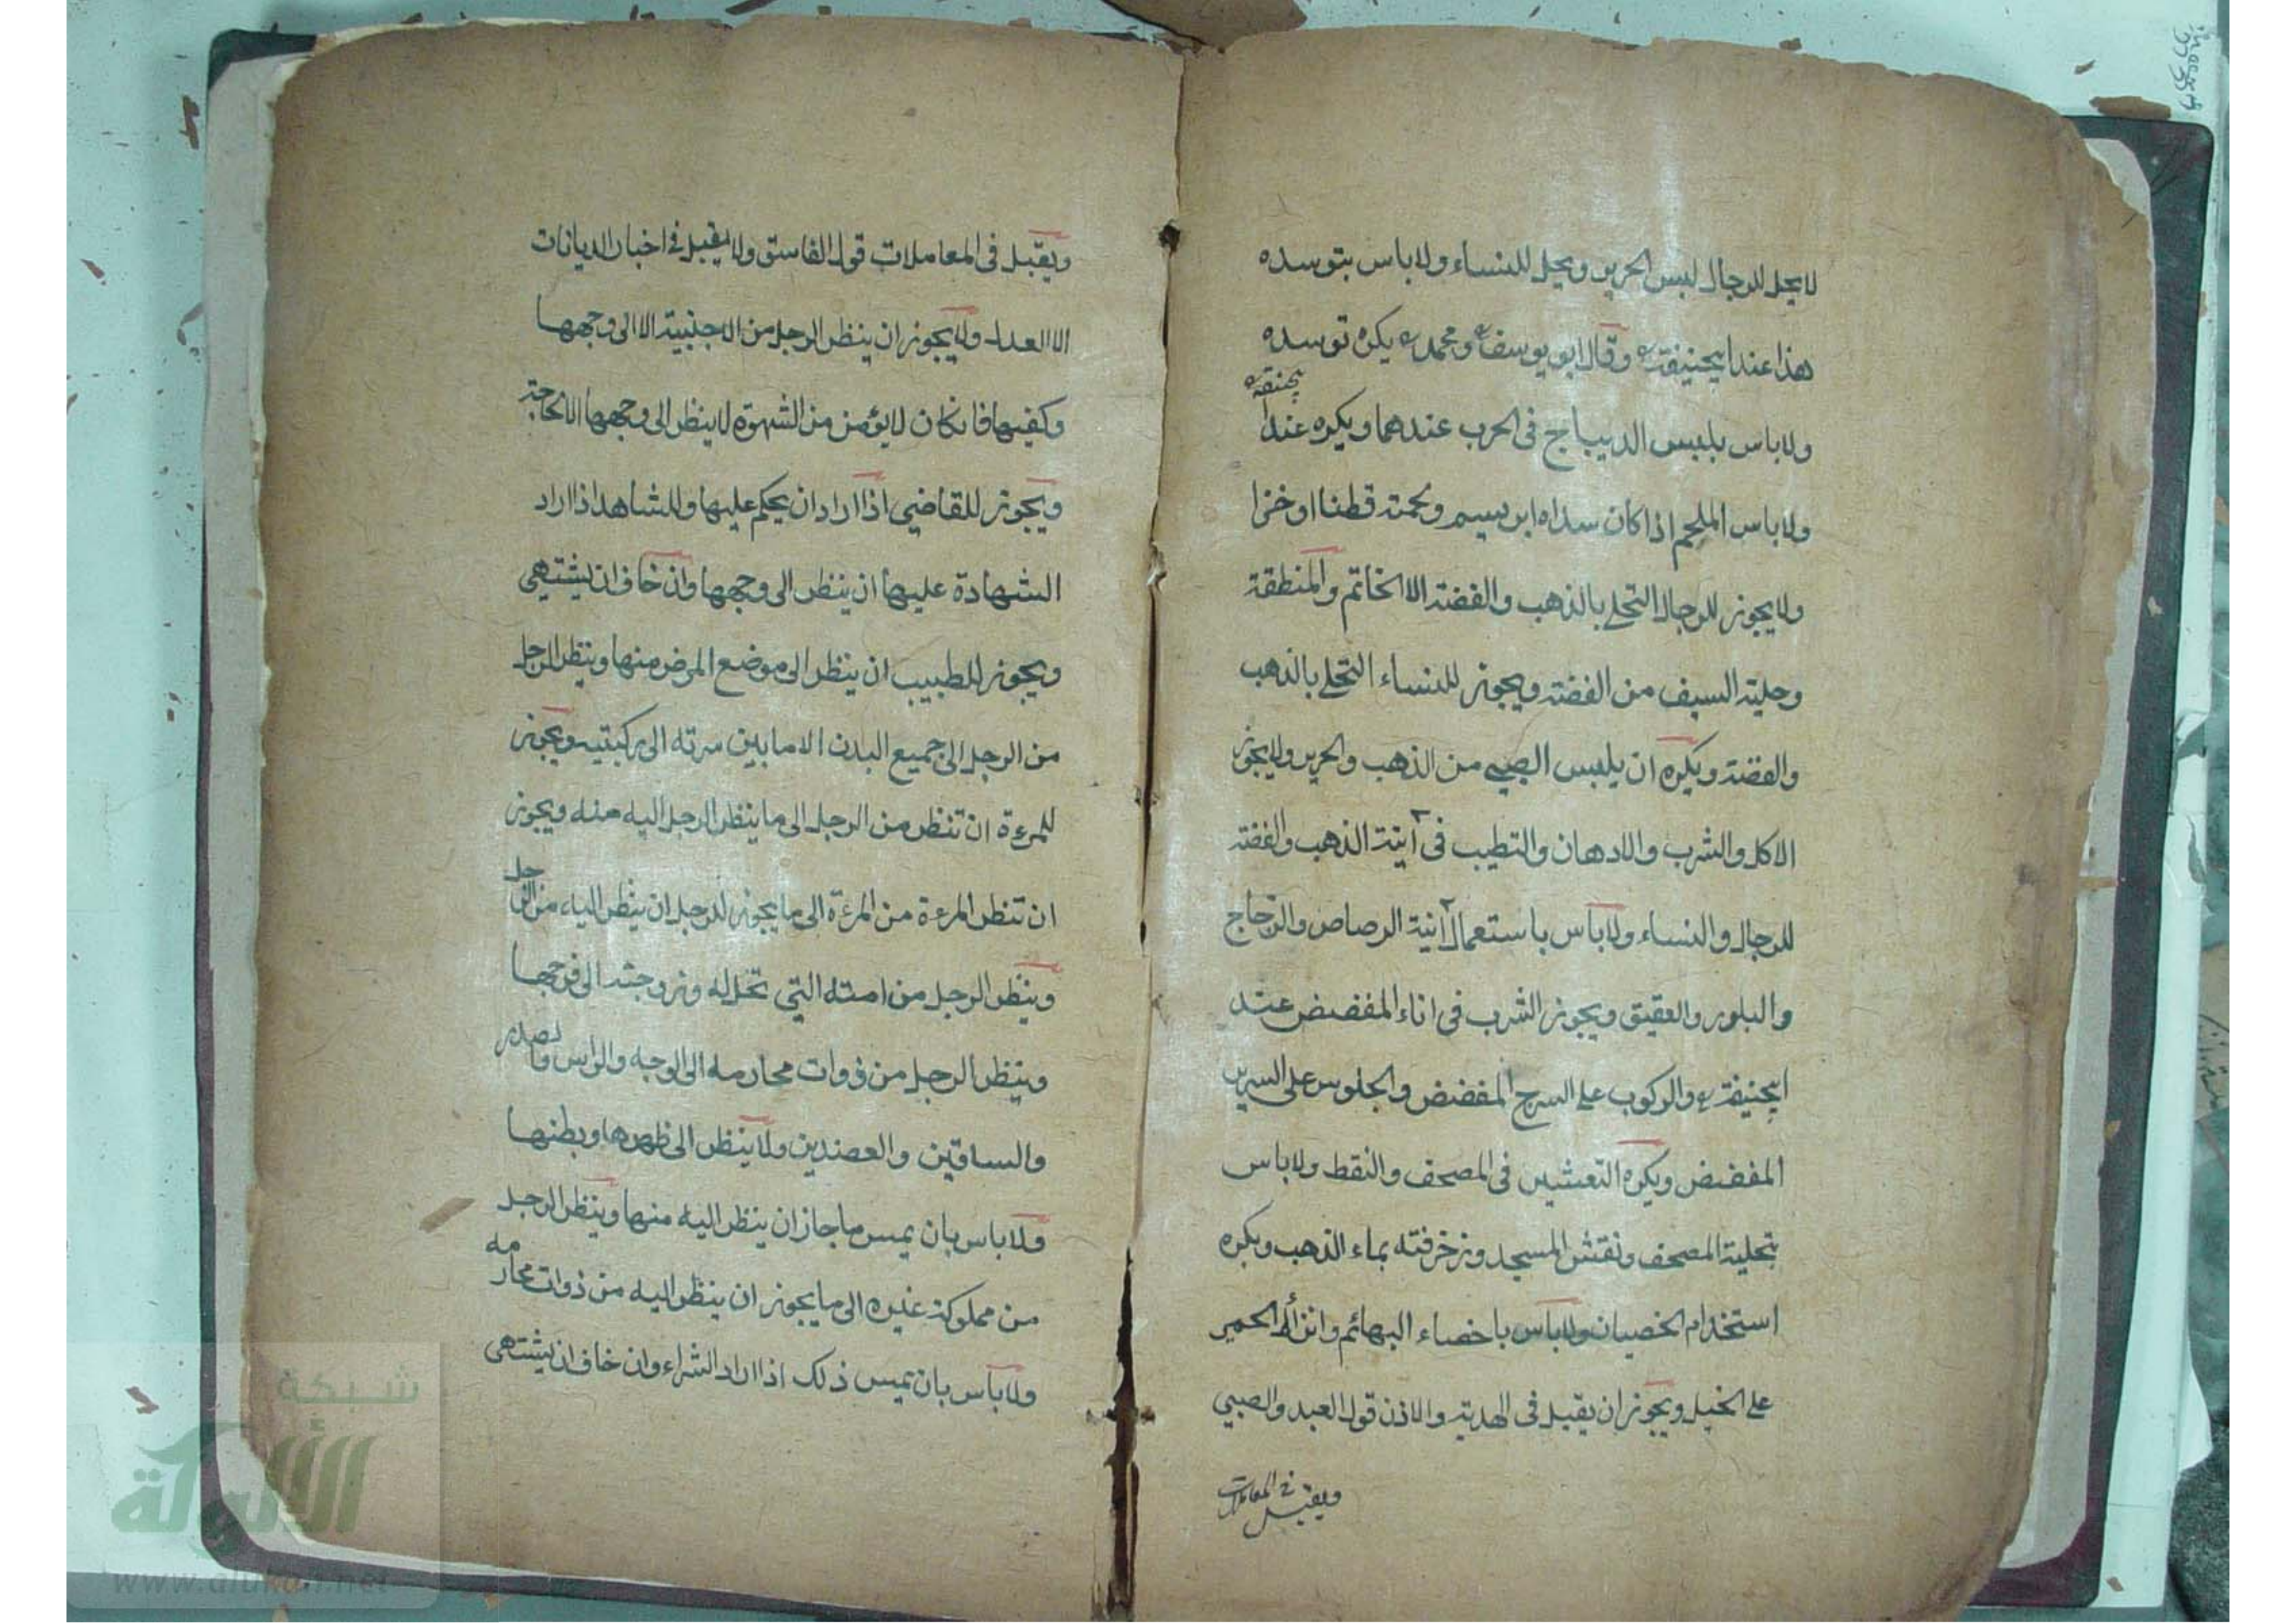 لا يحل للرجال لبس الحرير ويحل للنساء ولا باس بتوسده
هذا عند ابيحنيفة رح وقال ابو يوسف رح ومحمد رح يكره توسده
ولا باس بلبس الديباج في الحرب عندهما ويكره عند ابيحنيفة رح
ولا باس الملحم اذا كان سداه ابريسم ولحمته قطنا او خزا
ولا يجوز للرجال التحلي بالذهب والفضة الا الخاتم والمنطقة
وحلية السيف من الفضة ويجوز للنساء التحلي بالذهب
والفضة ويكره ان يلبس الصبي من الذهب والحرير ولا يجوز
الاكل والشرب والادهان والتطيب في آنية الذهب والفضة
للرجال والنساء ولا باس باستعمال آنية الرصاص والزجاج
والبلور والعقيق ويجوز الشرب في اناء المفضض عند
ابيحنيفة رح والركوب على السرج المفضض والجلوس على السرير
المفضض ويكره التعشير في المصحف والنقط ولا باس
بتحلية المصحف ونقش المسجد وزخرفته بماء الذهب ويكره
استخدام الخصيان ولا باس باخصاء البهائم وانزاء الحمير
على الخيل ويجوز ان يقبل في الهدية والاذن قول العبد والصبي
ويقبل في المعاملات
ويقبل في المعاملات قول الفاسق ولا يقبل في اخبار الديانات
الا العدل ولا يجوز ان ينظر الرجل من الاجنبية الا الى وجهها
وكفيها فانكان لا يؤمن من الشهوة لا ينظر الى وجهها الا لحاجة
ويجوز للقاضي اذا اراد ان يحكم عليها وللشاهد اذا اراد
الشهادة عليها ان ينظر الى وجهها وان خاف ان يشتهي
ويجوز للطبيب ان ينظر الى موضع المرض منها وينظر الرجل
من الرجل الى جميع البدن الا ما بين سرته الى ركبتيه ويجوز
للمرءة ان تنظر من الرجل الى ما ينظر الرجل اليه منه ويجوز
ان تنظر المرءة من المرءة الى ما يجوز للرجل ان ينظر اليه من الرجل
وينظر الرجل من امته التي تحل له وزوجته الى فرجها
وينظر الرجل من ذوات محارمه الى الوجه والراس والصدر
والساقين والعضدين ولا ينظر الى ظهرها وبطنها
ولا باس بان يمس ما جاز ان ينظر اليه منها وينظر الرجل
من مملوكة غيره الى ما يجوز ان ينظر اليه من ذوات محارمه
ولا باس بان يمس ذلك اذا اراد الشراء وان خاف ان يشتهي
شبكة
الألوكة
www.alukah.net